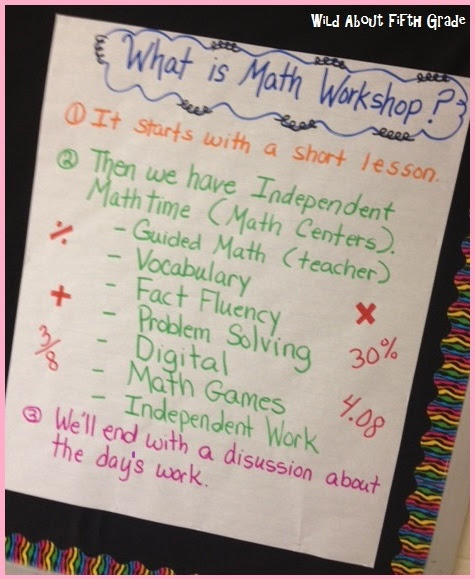 Wild About Fifth Grade
What is Math Workshop?
① It starts with a short lesson.
② Then we have Independent
Math time (Math Centers).
- Guided Math (teacher)
÷ - Vocabulary
- Fact Fluency ×
+ - Problem Solving 30%
- Digital
3/8 - Math Games 4.08
- Independent Work
③ We'll end with a disussion about
the day's work.